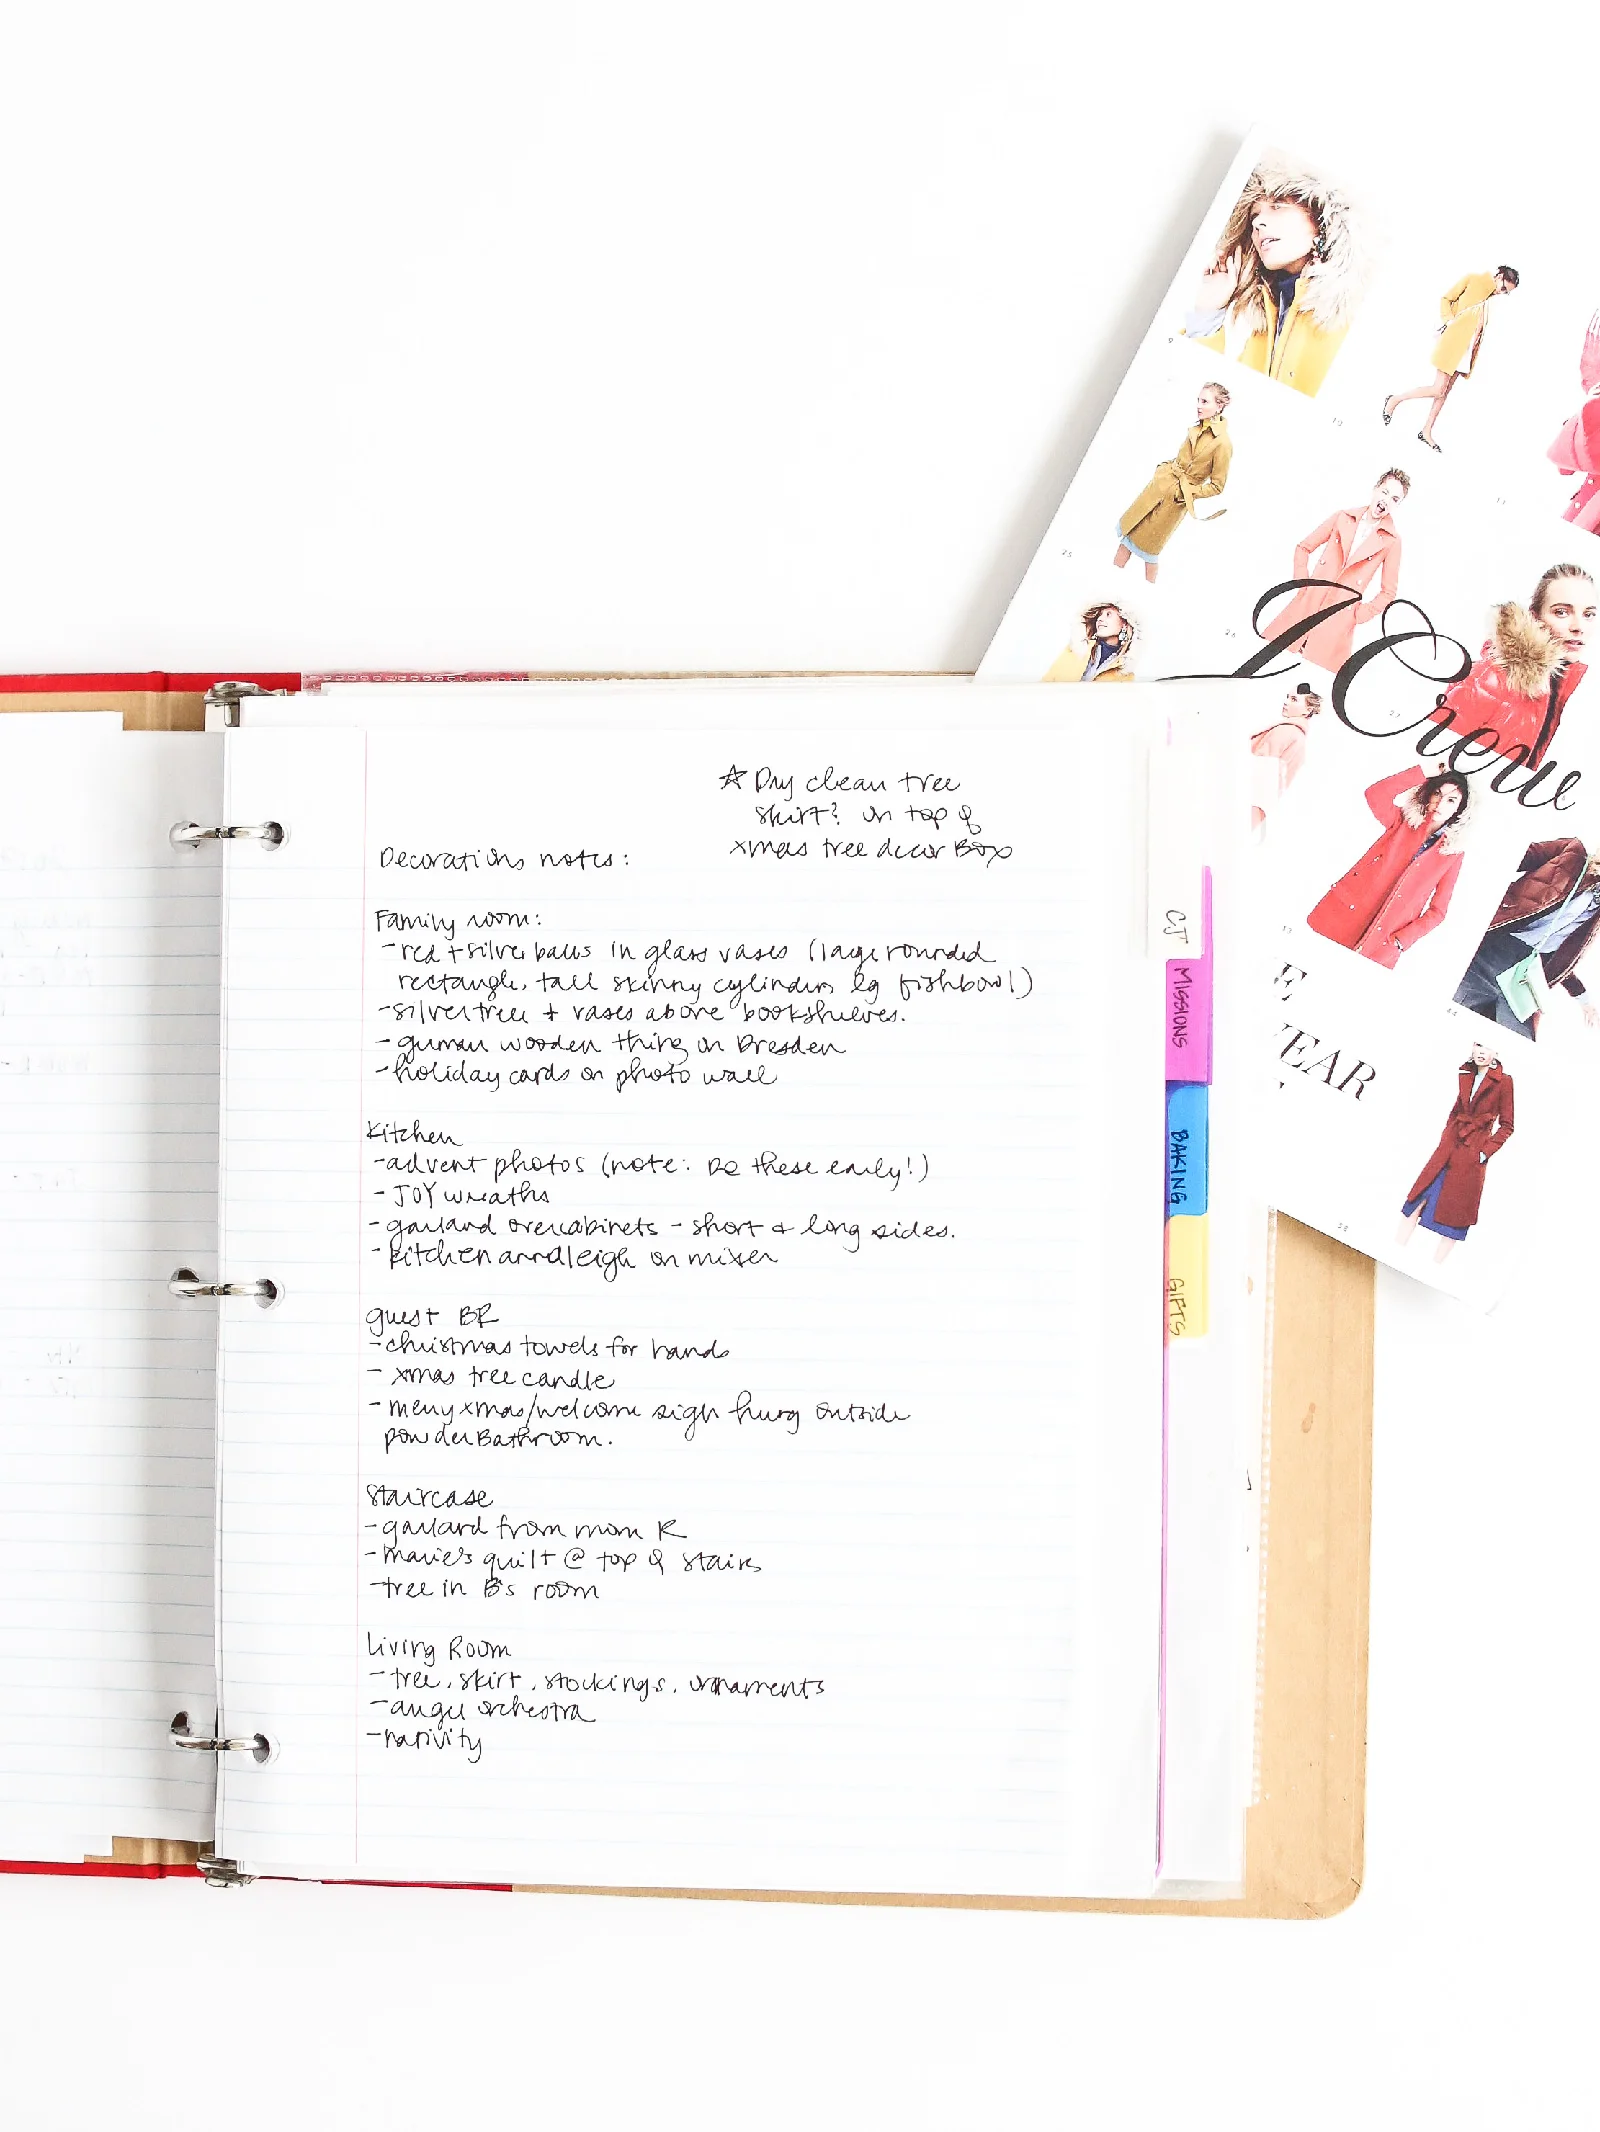 ☆ Dry clean tree
skirt? in top of
xmas tree decor Box
Decorations notes:
Family room:
- red + silver balls in glass vases (large rounded
rectangle, tall skinny cylinders lg fishbowl)
- silver tree + vases above bookshelves.
- german wooden thing on Dresden
- holiday cards on photo wall
Kitchen
- advent photos (note: Do these early!)
- JOY wreaths
- garland over cabinets - short & long sides.
- kitchen on mixer
guest BR
- christmas towels for hands
- xmas tree candle
- merry xmas/welcome sign hung outside
powder Bathroom.
Staircase
- garland from mom R
- Marie's quilt @ top of stairs
- tree in B's room
Living Room
- tree, skirt, stockings, ornaments
- angel orchestra
- nativity
CJ
MISSIONS
BAKING
GIFTS
J.Crew
E
YEAR